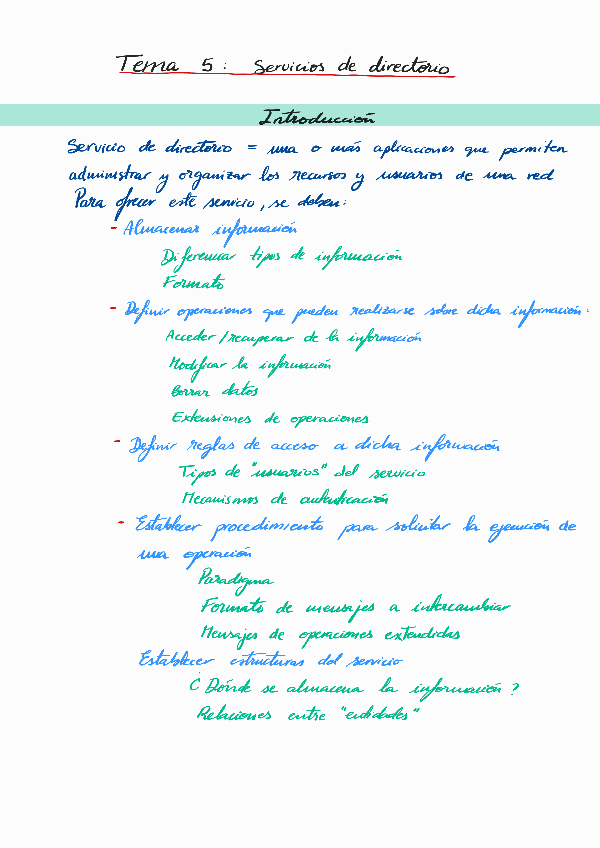 Tema 5: Servicios de directorio
Introducción
Servicio de directorio = una o más aplicaciones que permiten
administrar y organizar los recursos y usuarios de una red
Para ofrecer este servicio, se deben:
- Almacenar información
Diferenciar tipos de información
Formato
- Definir operaciones que pueden realizarse sobre dicha información:
Acceder / recuperar de la información
Modificar la información
Borrar datos
Extensiones de operaciones
- Definir reglas de acceso a dicha información
Tipos de "usuarios" del servicio
Mecanismos de autenticación
- Establecer procedimiento para solicitar la ejecución de
una operación
Paradigma
Formato de mensajes a intercambiar
Mensajes de operaciones extendidas
Establecer estructuras del servicio
¿Dónde se almacena la información?
Relaciones entre "entidades"